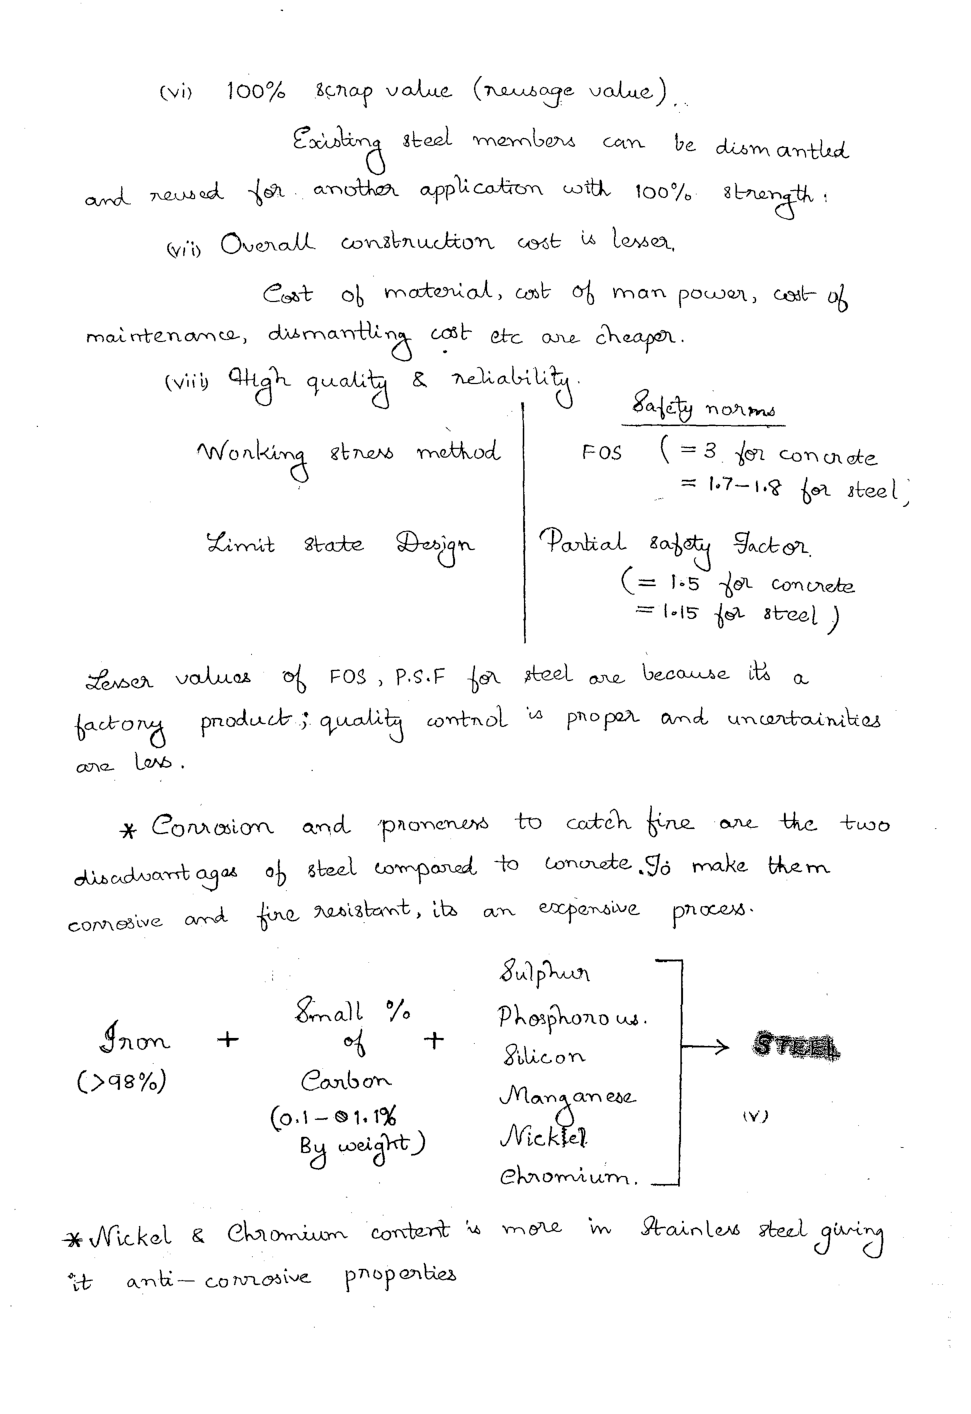 (vi) 100% scrap value (reusage value).
Existing steel members can be dismantled
and reused for another application with 100% strength.
(vii) Overall construction cost is lesser.
Cost of material, cost of man power, cost of
maintenance, dismantling cost etc are cheaper.
(viii) High quality & reliability.
Safety norms
Working stress method FOS (= 3 for concrete
= 1.7-1.8 for steel)
Limit state Design Partial safety Factor.
(= 1.5 for concrete
= 1.15 for steel)
Lesser values of FOS, P.S.F for steel are because its a
factory product; quality control is proper and uncertainities
are less.
* Corrosion and proneness to catch fire are the two
disadvantages of steel compared to concrete. To make them
corrosive and fire resistant, its an expensive process.
Iron
(>98%)
+
Small %
of
Carbon
(0.1-1.1%
By weight)
+
Sulphur
Phosphorous.
Silicon
Manganese
Nickel
Chromium.
→ STEEL
(v)
* Nickel & Chromium content is more in Stainless steel giving
it anti-corrosive properties